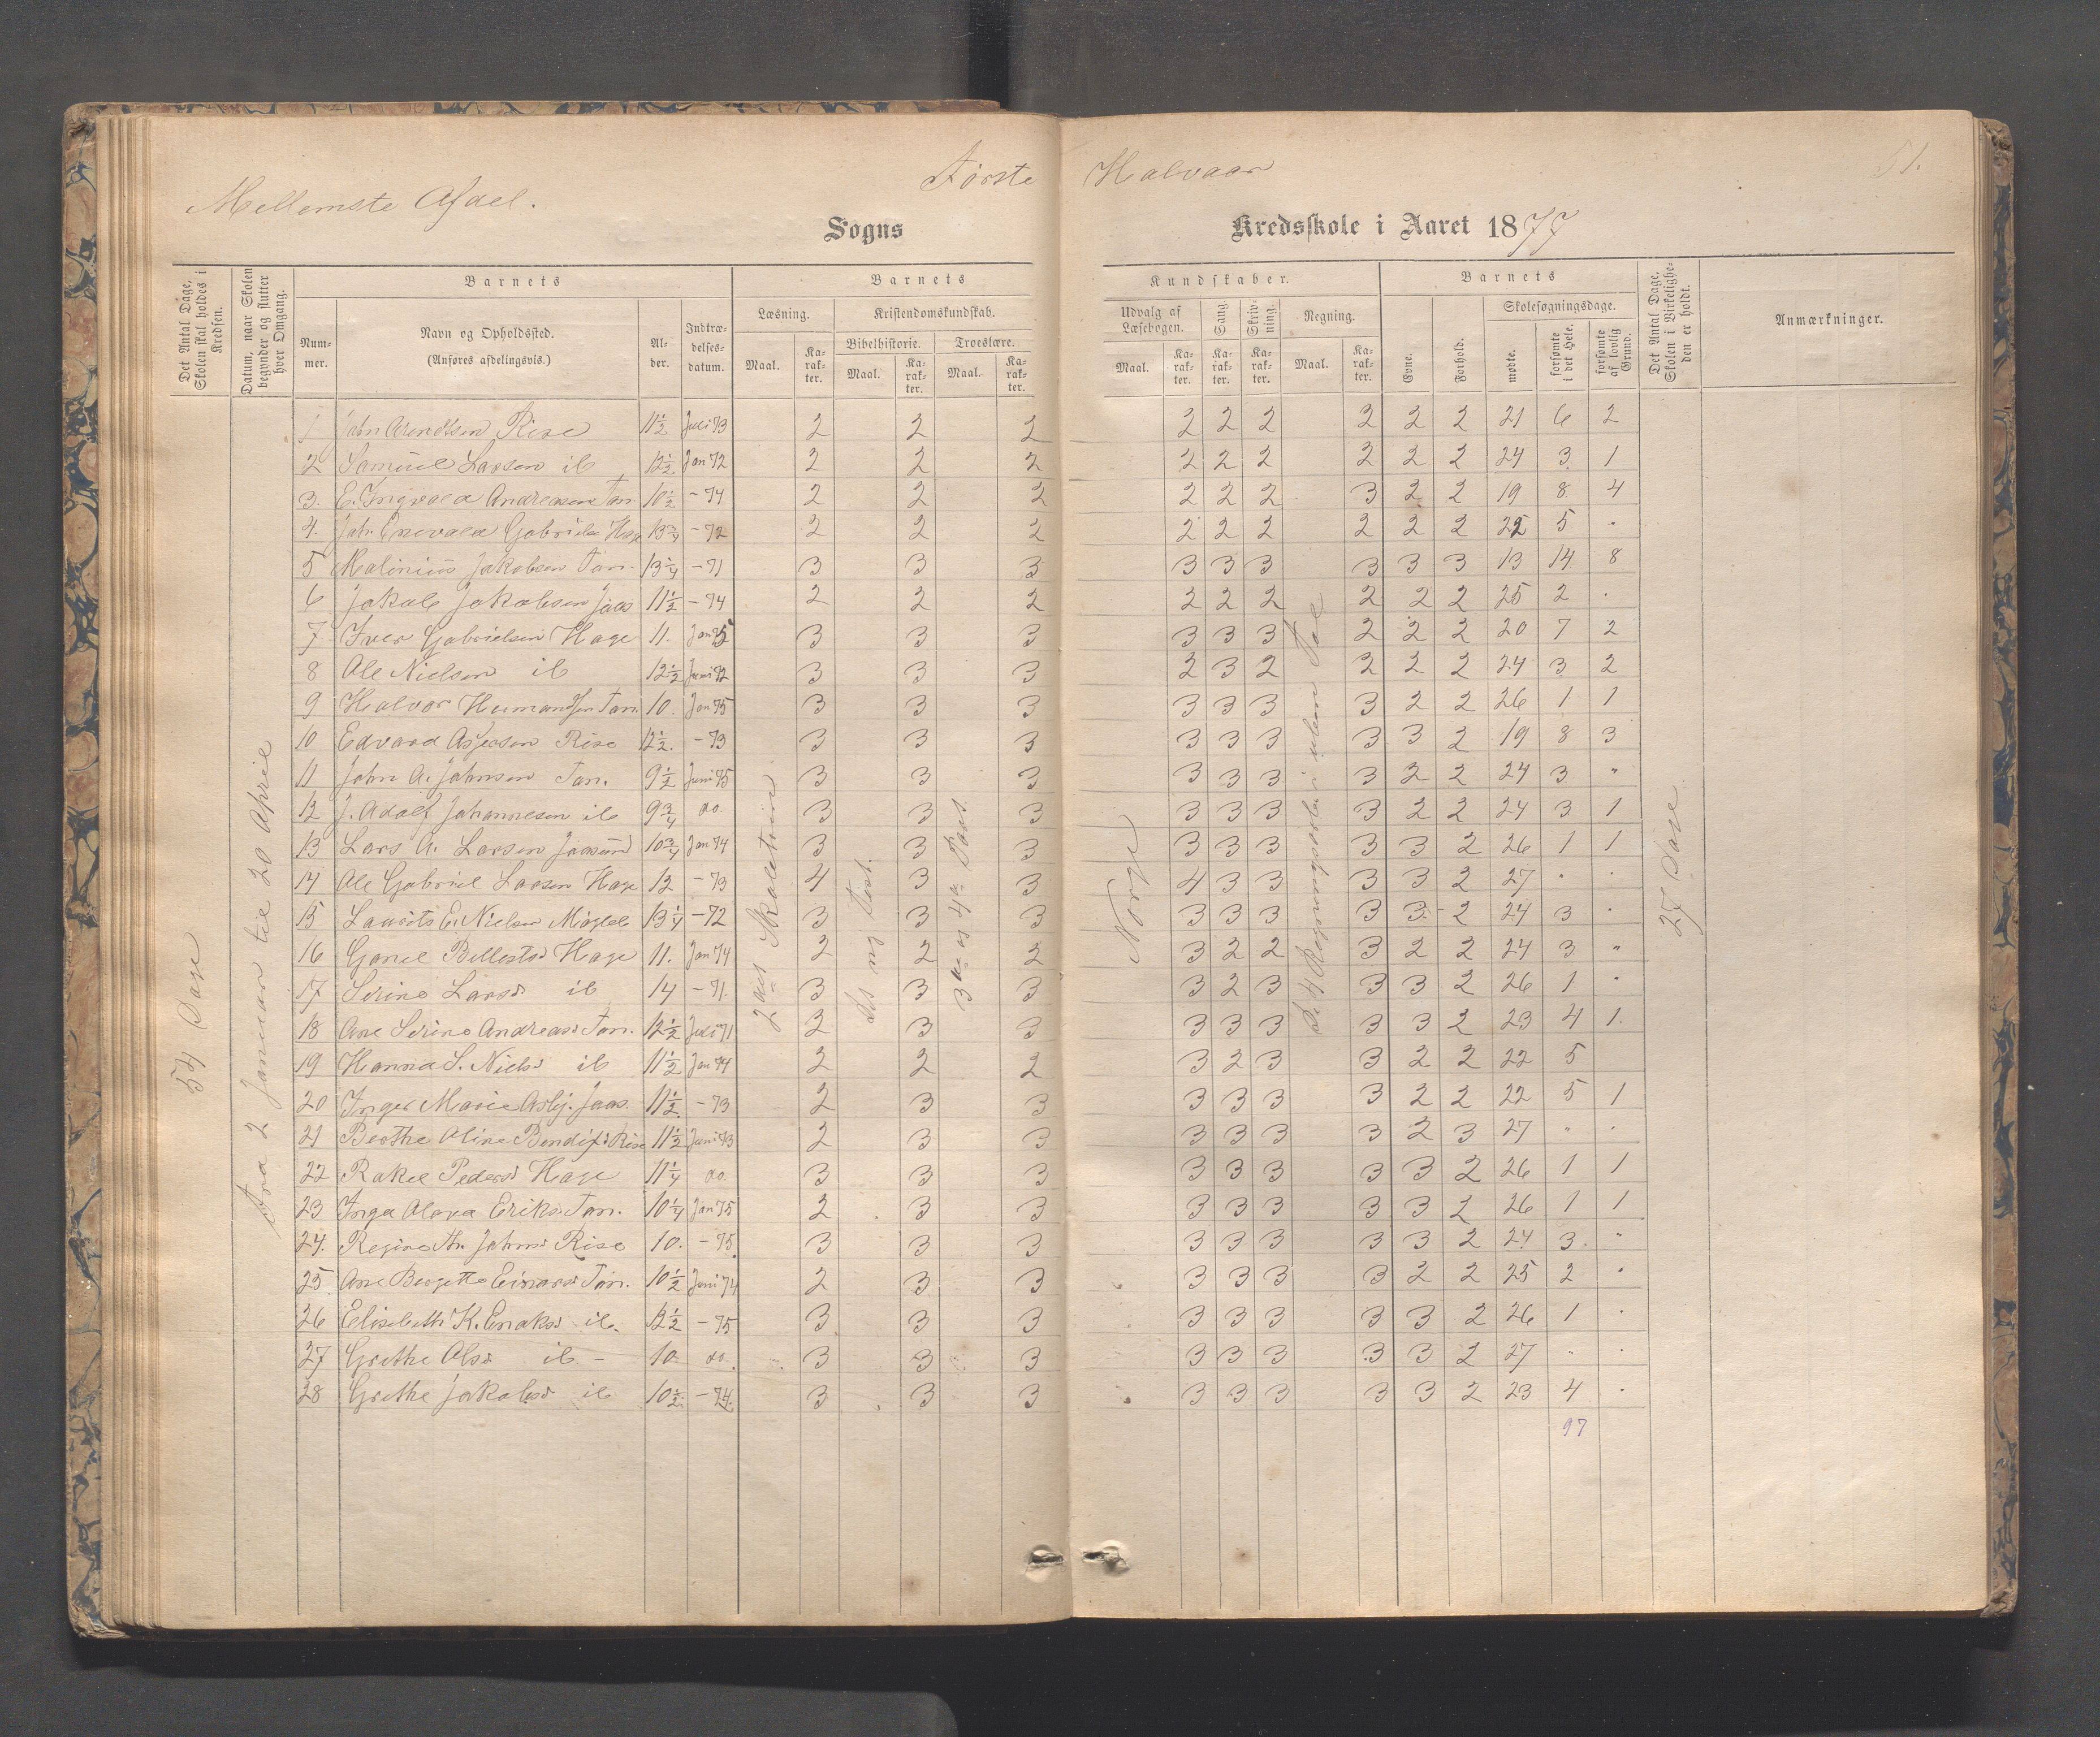 Første Halvaar 51.
Mellemste Afdel.
Sogns Kredsskole i Aaret 1877
Det Antal Dage, Skolen skal holdes i Kredsen.
Datum, naar Skolen begynder og slutter hver Omgang.
Barnets
Nummer.
Navn og Opholdssted. (Anføres afdelingsvis.)
Alder.
Indtrædelsesdatum.
Barnets Kundskaber.
Læsning. Maal. Karakter.
Kristendomskundskab.
Bibelhistorie. Maal. Karakter.
Troeslære. Maal. Karakter.
Udvalg af Læsebogen. Maal. Karakter.
Sang. Karakter.
Skrivning. Karakter.
Regning. Maal. Karakter.
Barnets
Evne.
Forhold.
Skolesøgningsdage.
mødte.
forsømte i det Hele.
forsømte af lovlig Grund.
Det Antal Dage, Skolen i Virkeligheden er holdt.
Anmærkninger.
54 Dage
Fra 2 Januar til 20 April
2det Skoletrin
3die og 4de Part.
Norge
27 Dage
1 John Arendtsen Rise 11½ Juli 73 2 2 2 2 2 2 2 2 2 21 6 2
2 Samuel Larsen ib 12½ Jan 72 2 2 2 2 2 2 2 2 2 24 3 1
3. E. Ingvald Andreasen Tan. 10½ - 74 2 2 2 2 2 2 3 2 2 19 8 4
4. Joh. Enevald Gabriels. Hage 13¾ - 72 2 2 2 2 2 2 2 2 2 22 5 .
5 Malinius Jakobsen Tan. 13¼ - 71 3 3 3 3 3 3 3 3 3 13 14 8
6 Jakob Jakobsen Jaas 11½ - 74 2 2 2 2 2 2 2 2 2 25 2 .
7 Iver Gabrielsen Hage 11. Jan 75 3 3 3 3 3 3 2 2 2 20 7 2
8 Ole Nielsen ib 12½ Juni 72 3 3 3 2 3 2 2 2 2 24 3 2
9 Halvor Hermandsen Tan. 10. Jan 75 3 3 3 3 3 3 3 2 2 26 1 1
10 Edvard Asjersen Rise 12½. - 73 3 3 3 3 3 3 3 3 2 19 8 3
11 John A. Johnsen Tan. 9½ Juni 75 3 3 3 3 3 3 3 2 2 24 3 "
12 J. Adolf Johannesen ib 9¾ do. 3 3 3 3 3 3 3 2 2 24 3 1
13 Lars A. Larsen Jaasund 10¾ Jan 74 3 3 3 3 3 3 3 3 2 26 1 1
14 Ole Gabriel Larsen Hage 12 - 73 4 3 3 4 3 3 3 3 2 27 . .
15 Laurits E. Nielsen 13¼ - 72 3 3 3 3 3 3 3 3 2 24 3 .
16 Gonel Hage 11. Jan 74 2 2 2 3 2 2 3 2 2 24 3 "
17 Serine Larsd ib 14 - 71. 3 3 3 3 2 3 3 3 2 26 1 .
18 Ane Serine Andreasd Tan. 12½ Juli 71 2 3 3 3 3 3 3 3 2 23 4 1.
19 Hanna S. Nielsd ib 11½ Jan 74 2 2 2 3 2 3 3 2 2 22 5
20 Inger Marie Asbj. Jaas. 11½. - 73 2 3 3 3 3 3 3 2 2 22 5 1
21 Berthe Oline Bendixd Rise 11½ Juni 73 2 3 3 3 3 3 3 2 3 27 " .
22 Rakel Pedersd Hage 11¼ do. 3 3 3 3 3 3 3 3 2 26 1 1
23 Inga Eriksd. Tan. 10¼ Jan 75 2 3 3 3 3 3 3 3 2 26 1 1
24. Regine M. Johnsd Rise 10. - 75. 3 3 3 3 3 3 3 3 2 24 3. "
25 Ane Bergitte Einarsd Tan. 10½ Juni 74 2 3 3 3 3 3 3 2 2 25 2 .
26 Elisabeth K. ib. - 75 3 3 3 3 3 3 3 3 2 26 1 .
27 Grethe Olsd ib - 10 do. 3 3 3 3 3 3 3 3 2 27 " .
28 Grethe Jakobsd ib 10½. - 74. 3 3 3 3 3 3 3 3 2 23 4 .
97